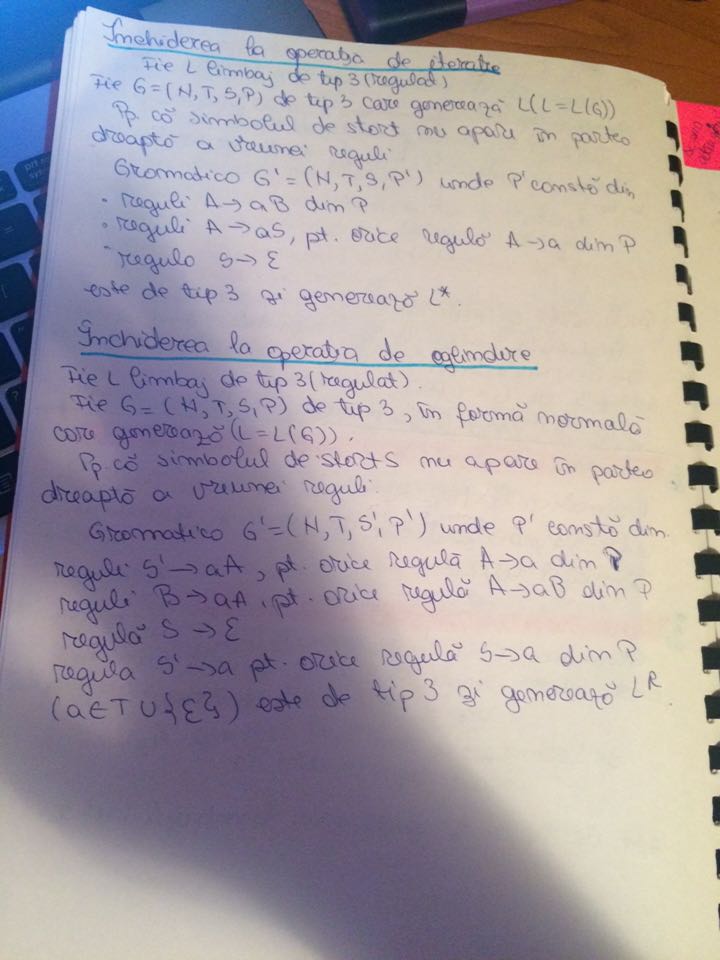 Închiderea la operația de iterație
Fie L limbaj de tip 3 (regulat)
Fie G = (N, T, S, P) de tip 3 care generează L (L = L(G))
Pp. că simbolul de start nu apare în partea
dreaptă a vreunei reguli
Gramatica G' = (N, T, S, P') unde P' constă din
• reguli A → aB din P
• reguli A → aS, pt. orice regulă A → a din P
• regula S → ε
este de tip 3 și generează L*.
Închiderea la operația de oglindire
Fie L limbaj de tip 3 (regulat).
Fie G = (N, T, S, P) de tip 3, în formă normală
care generează (L = L(G)).
Pp. că simbolul de start S nu apare în partea
dreaptă a vreunei reguli.
Gramatica G' = (N, T, S', P') unde P' constă din
reguli S' → aA, pt. orice regulă A → a din P
reguli B → aA, pt. orice regulă A → aB din P
regulă S → ε
regula S' → a pt. orice regulă S → a din P
(a ∈ T ∪ {ε}) este de tip 3 și generează L^R